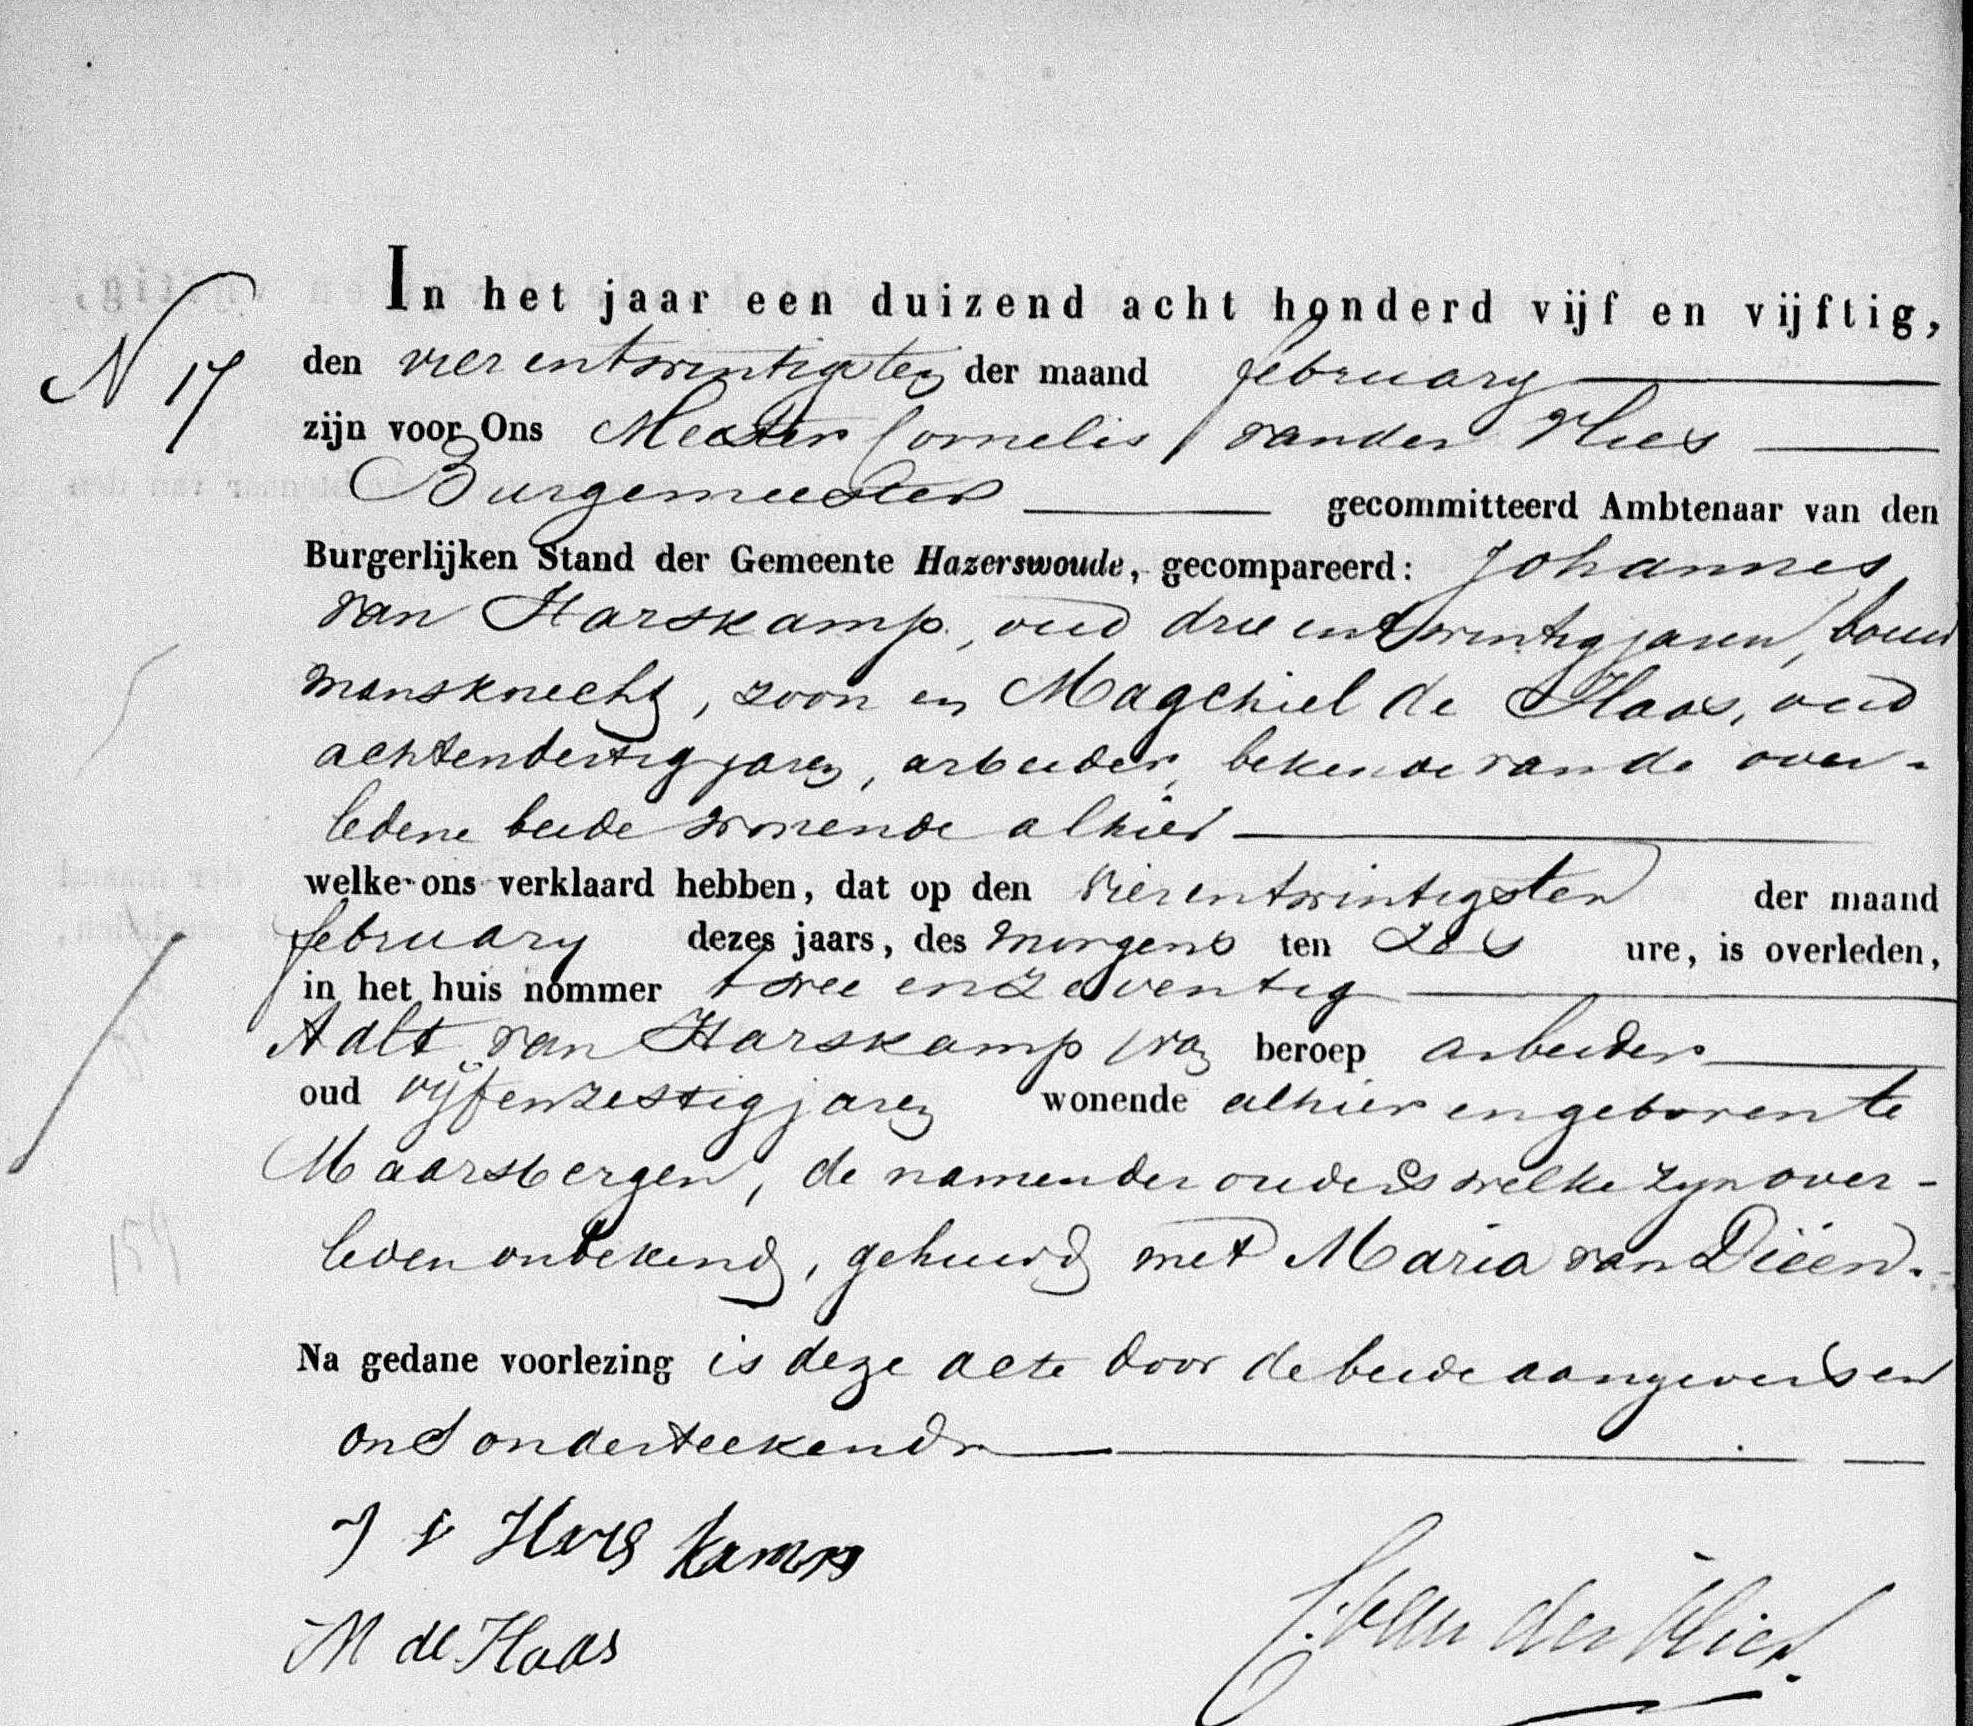 In het jaar een duizend acht honderd vijf en vijftig,
N 17 den vier entwintigsten der maand february
zijn voor Ons Meester Cornelis van der Vlies
Burgemeester gecommitteerd Ambtenaar van den
Burgerlijken Stand der Gemeente Hazerswoude, gecompareerd: Johannes
van Harskamp, oud drie entwintig jaren, bouw
mansknecht, zoon en Magchiel de Haas, oud
achtendertig jaren, arbeider, bekende van de over-
ledene beide wonende alhier
welke ons verklaard hebben, dat op den vierentwintigsten der maand
february dezes jaars, des morgens ten zes ure, is overleden,
in het huis nommer twee en zeventig
Aalt van Harskamp van beroep arbeider
oud vijfenzestig jaren wonende alhier en geboren te
Maarsbergen, de namen der ouders welke zyn over-
leden onbekend, gehuwd met Maria van Dieën.
Na gedane voorlezing is deze acte door de beide aangevers en
ons onderteekend
J v Hars kamp
M de Haas
C. van der Vlies.